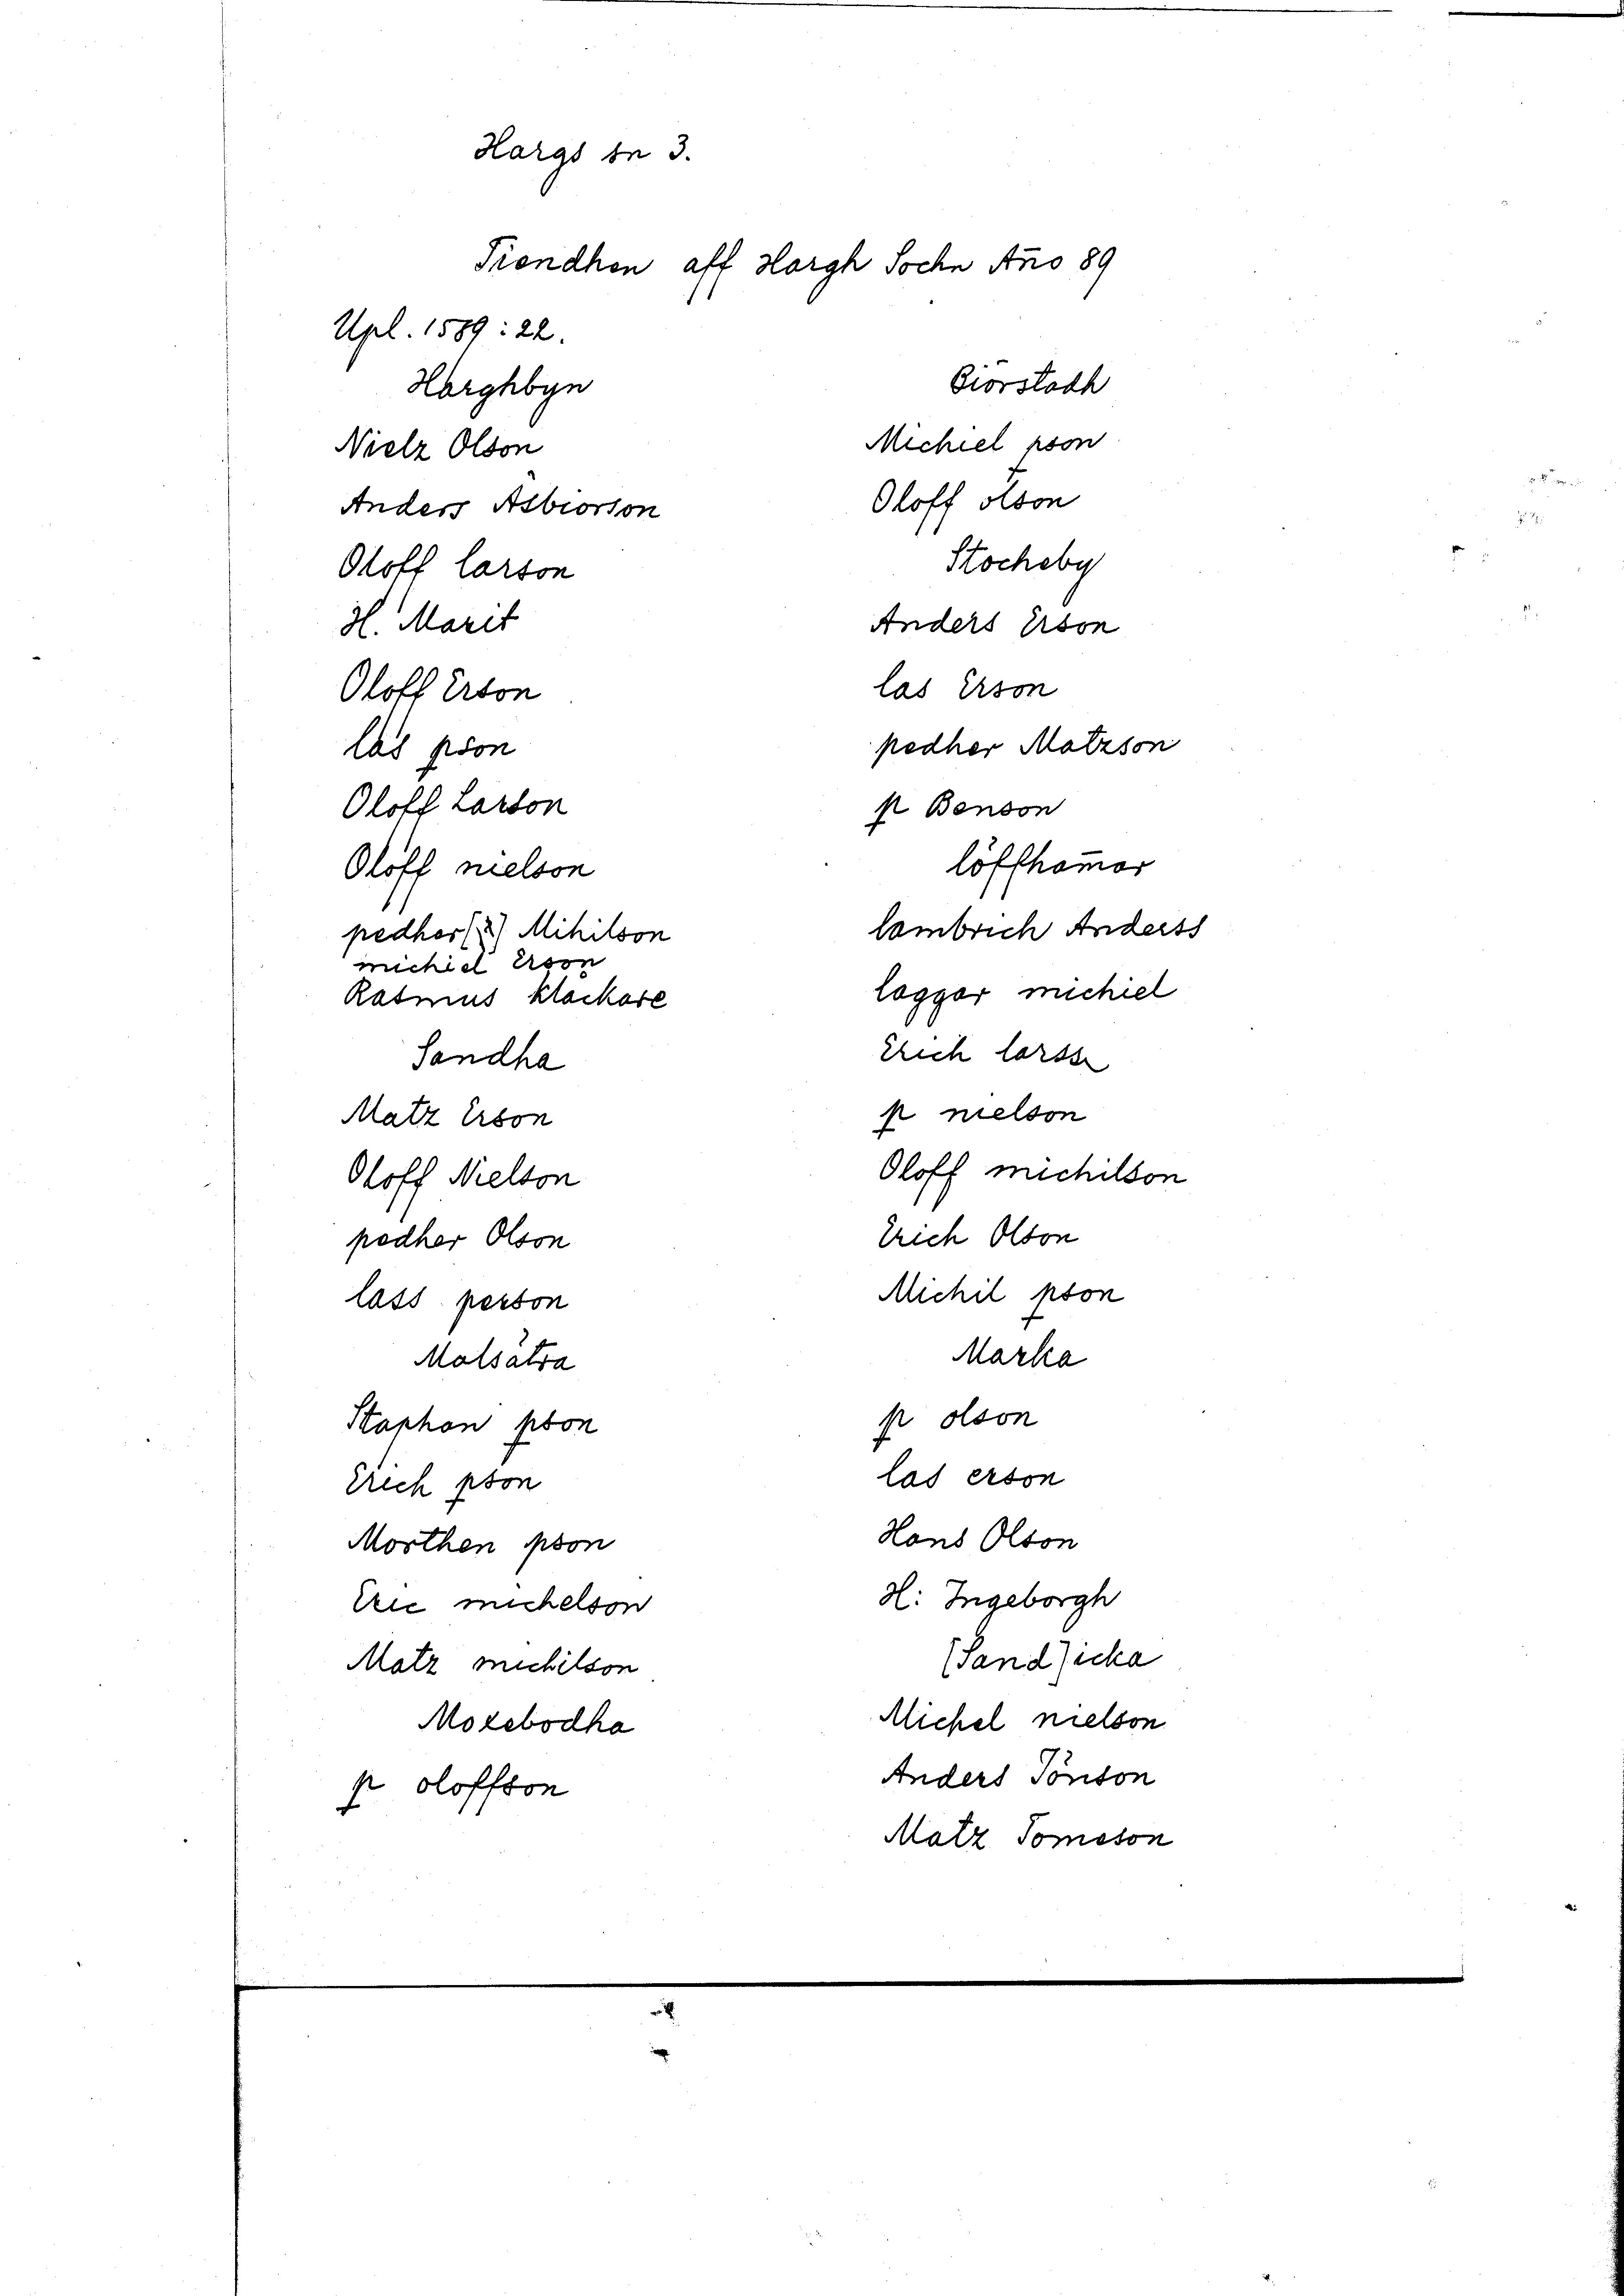 Hargs sn 3.
Tiendhen aff Hargh Sochn Año 89
Upl. 1589:22.
Harghbyn
Nielz Olson
Anders Asbiörson
Oloff larson
H. Marit
Oloff Erson
las pson
Oloff Larson
Oloff nielson
pedher (?) Mihilson
michiel Erson
Rasmus klackare
Sandha
Matz Erson
Oloff Nielson
pedher Olson
lass person
Malsätra
Staphan pson
Erich pson
Morthen pson
Eric michelson
Matz michilson
Moxebodha
p oloffson
Giörstadh
Michiel pson
Oloff olson
Stocheby
Anders Erson
las Erson
pedher Matzson
p Benson
löffham̄ar
lambrich Anderss
laggar michiel
Erich larss
p nielson
Oloff michilson
Erich Olson
Michil pson
Marka
p olson
las erson
Hans Olson
H: Ingeborgh
(Sand)icka
Michel nielson
Anders Tönson
Matz Tomeson